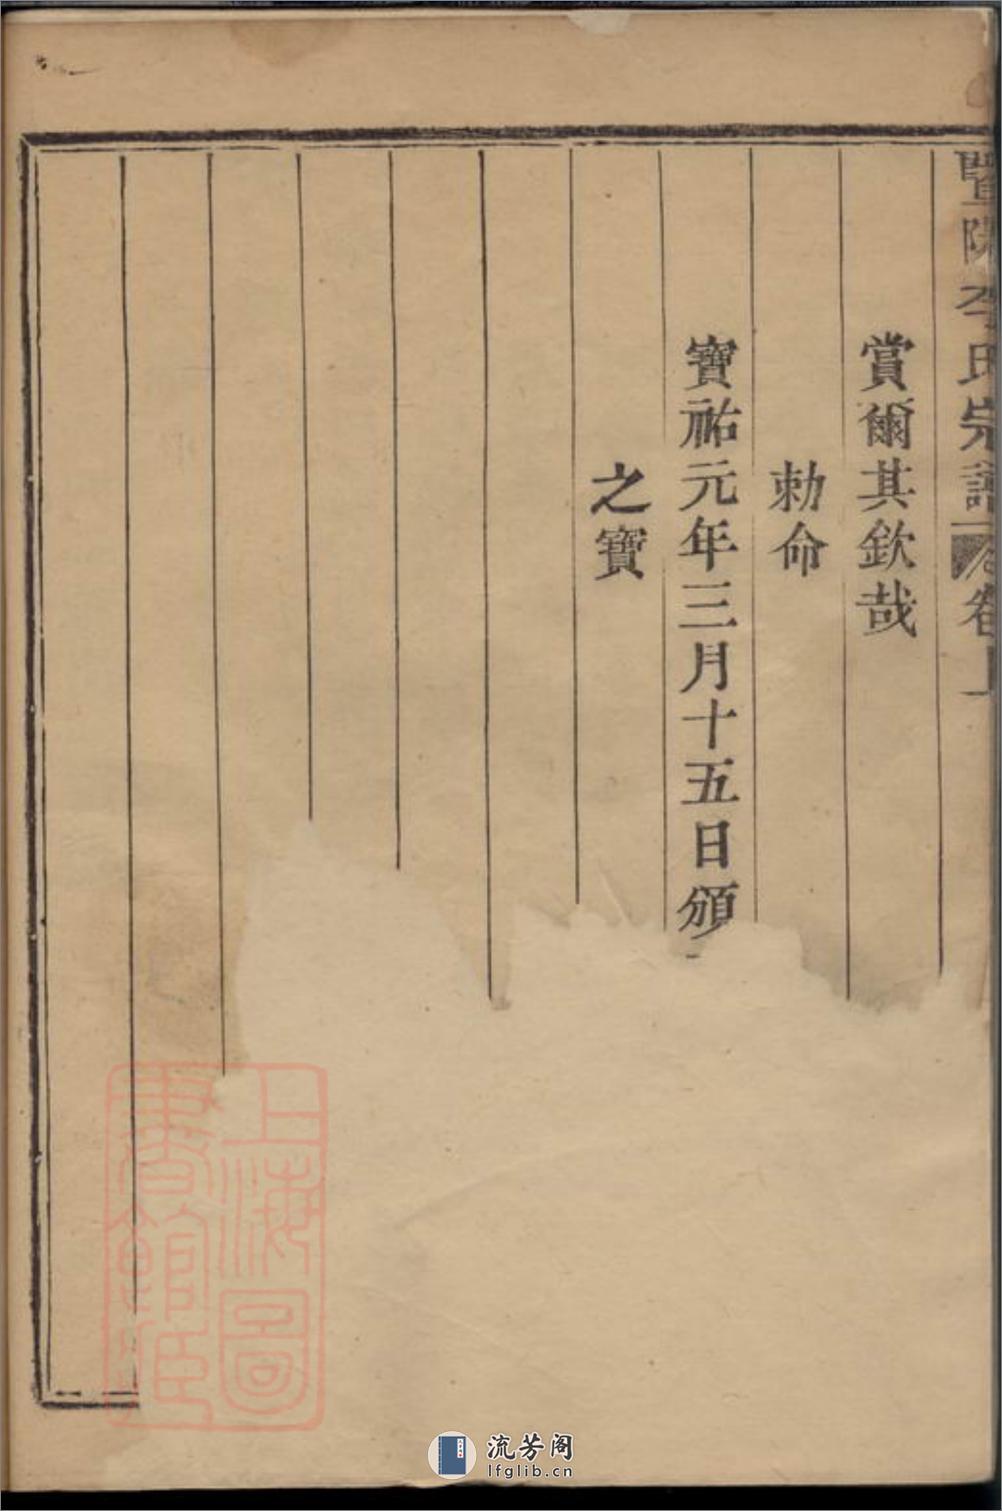 暨陽李氏宗譜 卷上
賞爾其欽哉
勅命
寶祐元年三月十五日頒
之寶
上海圖書館藏
流芳阁
lfglib.cn